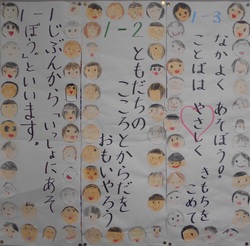 1-3
なかよく あそぼう。
ことばは やさしく
きもちを こめて
1-2
ともだちの
こころとからだを
おもいやろう
1-1
じぶんから「いっしょにあそ
ぼう」といいます。